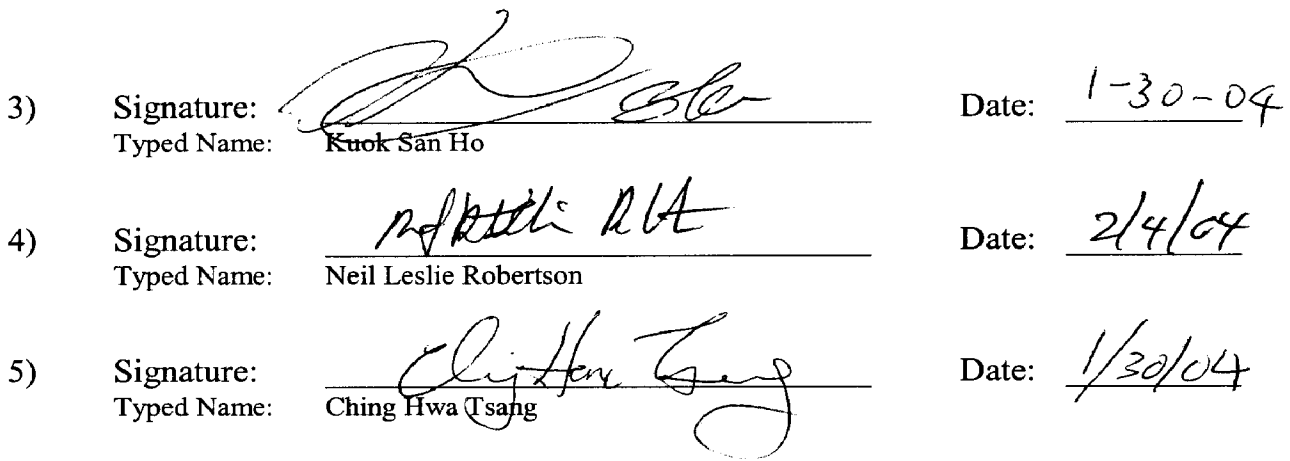 3) Signature: Date: 1-30-04
Typed Name: Kuok San Ho
4) Signature: Date: 2/4/04
Typed Name: Neil Leslie Robertson
5) Signature: Ching Hwa Tsang Date: 1/30/04
Typed Name: Ching Hwa Tsang